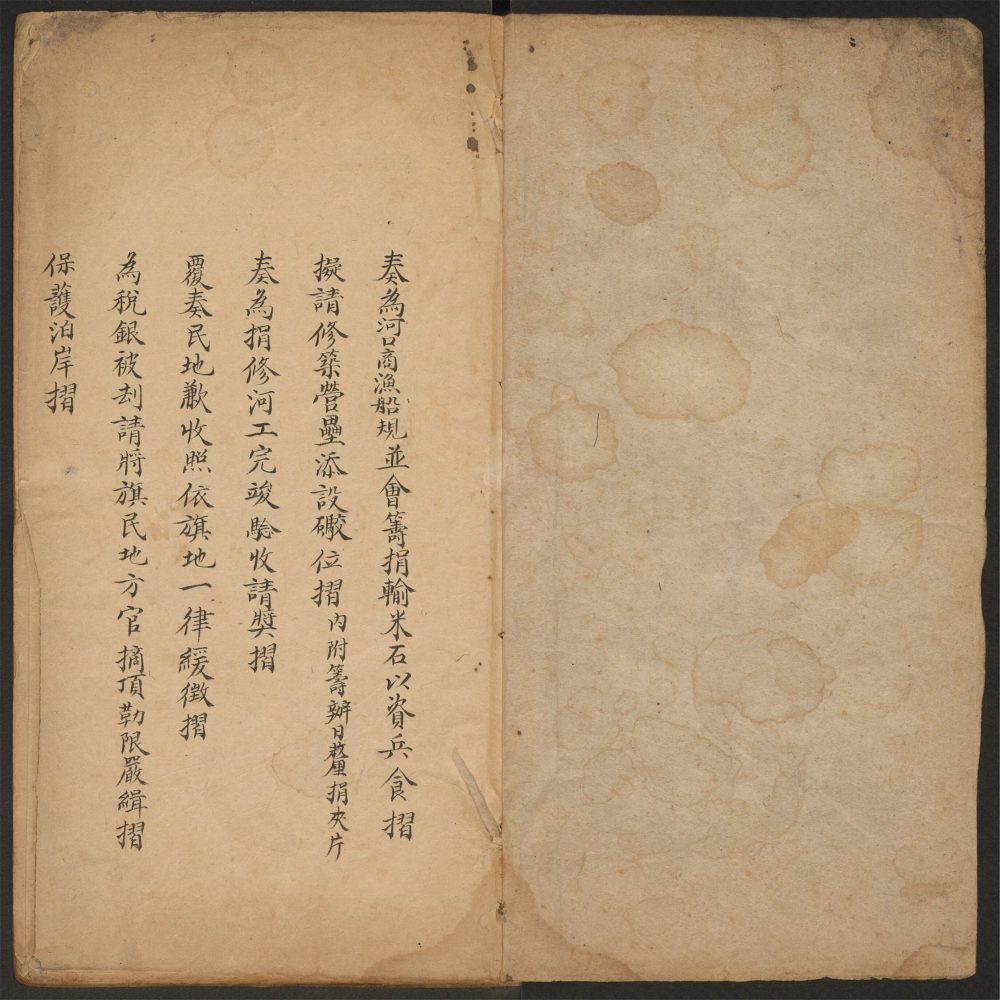 奏為河口商漁船規並會籌捐輸米石以資兵食摺
擬請修築營壘添設礮位摺內附籌辦日釐捐夾片
奏為捐修河工完竣驗收請獎摺
覆奏民地歉收照依旗地一律緩徵摺
為稅銀被刦請將旗民地方官摘頂勒限嚴緝摺
保護泊岸摺